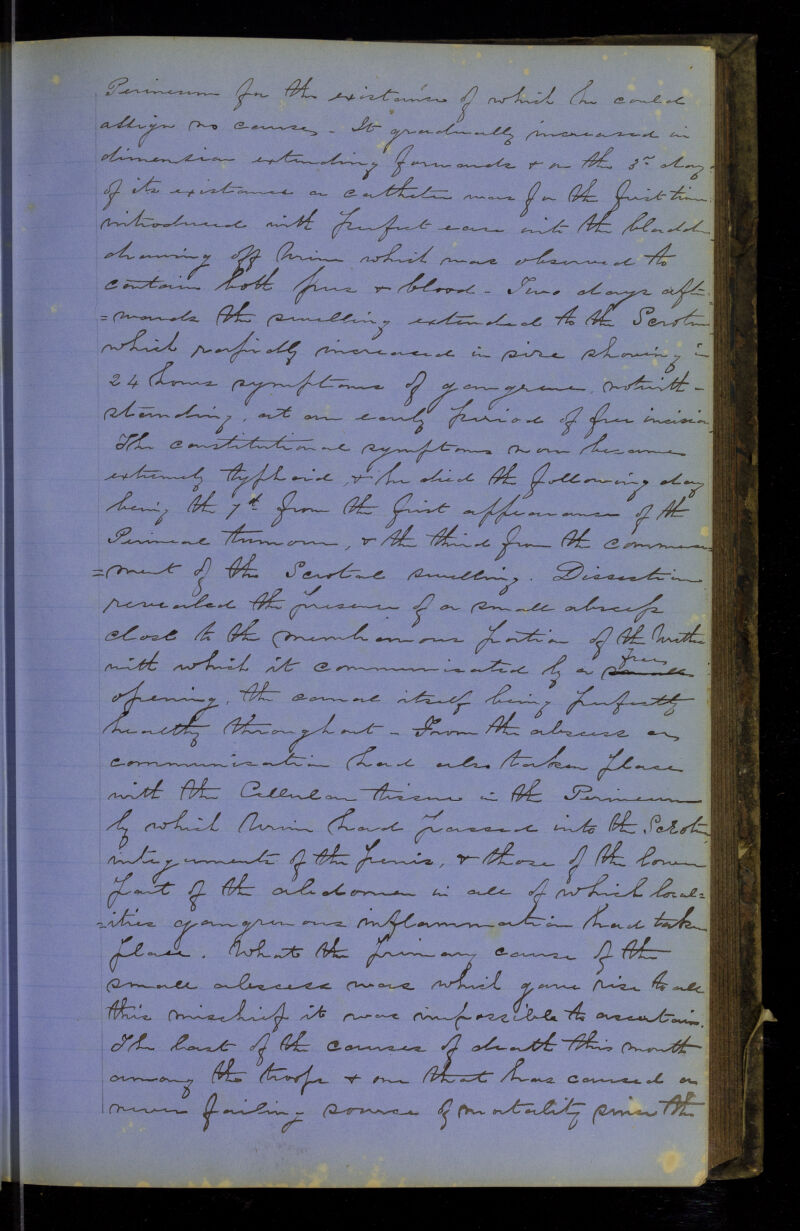 Perineum for the existance of which he could
assign no cause, - It gradually increased in
dimension extending forwards & on the 3rd day
of its existance a catheter was for the first time
introduced with perfect ease into the bladder
drawing off Urine which was observed to
contain both pus & blood - Two days aft=
=wards the swelling extended to the Scrotum
which rapidly increased in size showing in
24 hours symptoms of gangrene, notwith-
standing, at an early period of free incision.
The constitutional symptoms now became
extremely typhoid, & he died the following day
being the 7th from the first appearance of the
Perineal tumour, & the third from the commence
=ment of the Scrotal swelling. Dissection
revealed the presence of a small abscess
close to the membranous portion of the Urethra
with which it communicated by a free
opening, the canal itself being perfectly
healthy throughout - From the abscess a
communication had also taken place
with the Cellular tissue in the Perineum
by which Urine had passed into the Scrotum,
integuments of the penis, & those of the lower
part of the abdomen in all of which local=
=ities gangrenous inflammation had taken
place. What the primary cause of the
small abscess was which gave rise to all
this mischief it was impossible to ascertain.
The last of the causes of death this month
among the troops & one that has caused a
never failing source of mortality since the